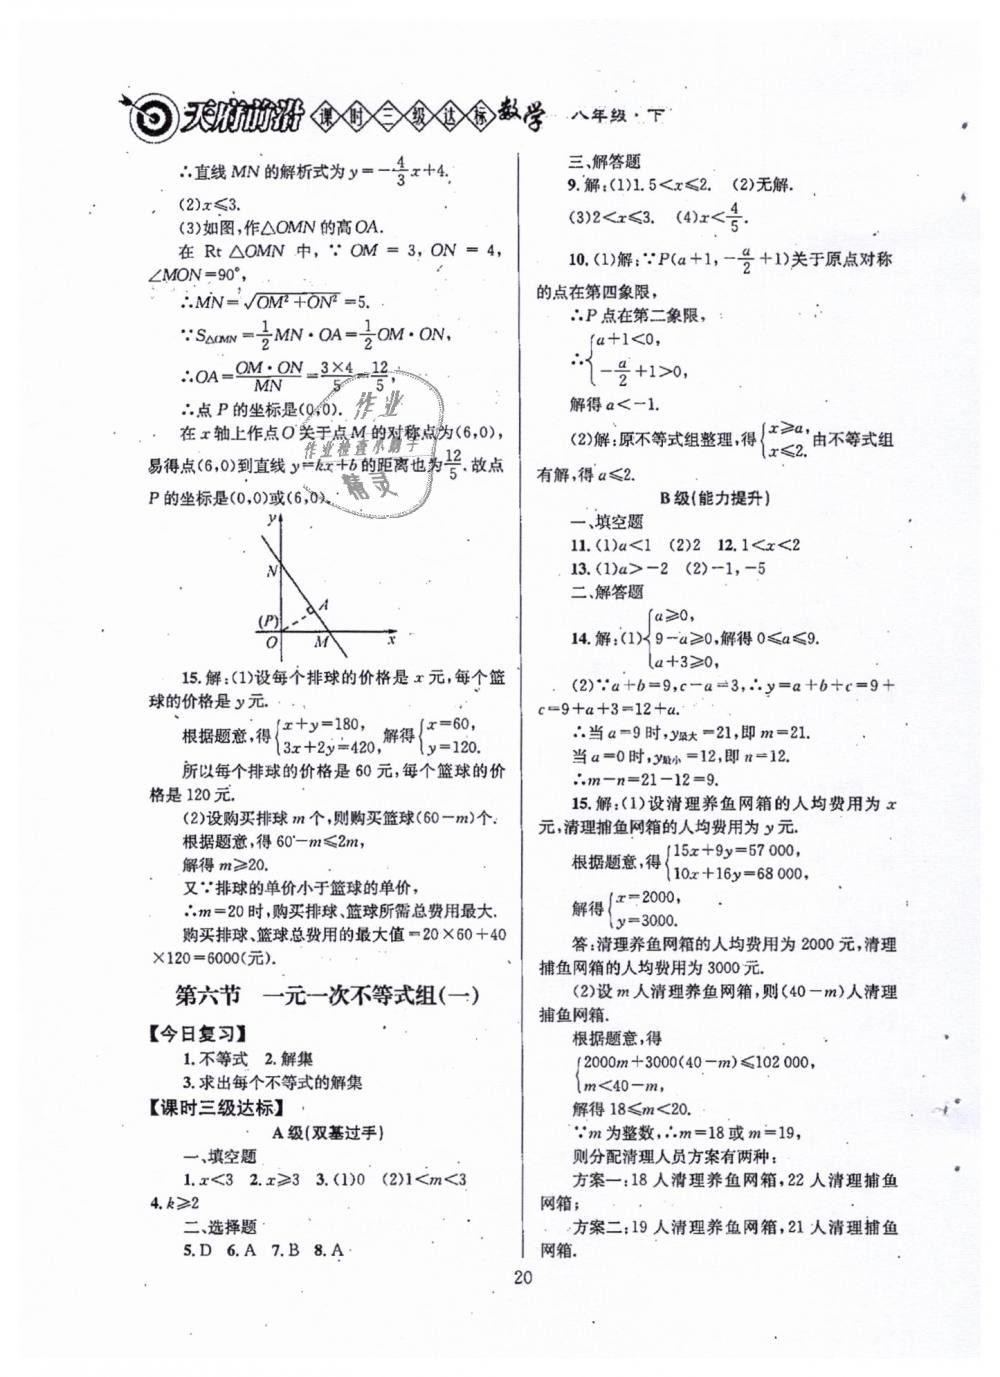 天府前沿 课时三级达标 数学 八年级·下
∴直线 MN 的解析式为 y=-4/3 x+4.
(2)x⩽3.
(3)如图,作△OMN 的高 OA.
在 Rt △OMN 中,∵ OM = 3, ON = 4,
∠MON=90°,
∴MN=√(OM²+ON²)=5.
∵S△OMN=1/2 MN·OA=1/2 OM·ON,
∴OA=OM·ON/MN=3×4/5=12/5,
∴点 P 的坐标是(0,0).
在 x 轴上作点 O 关于点 M 的对称点为(6,0),
易得点(6,0)到直线 y=kx+b 的距离也为12/5.故点
P 的坐标是(0,0)或(6,0).
作业
作业检查小助手
精灵
y
N
A
(P)
O M x
15.解:(1)设每个排球的价格是 x 元,每个篮
球的价格是 y 元.
根据题意,得{x+y=180, 3x+2y=420, 解得{x=60, y=120.
所以每个排球的价格是 60 元,每个篮球的价
格是 120 元.
(2)设购买排球 m 个,则购买篮球(60-m)个.
根据题意,得 60-m⩽2m,
解得 m⩾20.
又∵排球的单价小于篮球的单价,
∴m=20 时,购买排球、篮球所需总费用最大.
购买排球、篮球总费用的最大值=20×60+40
×120=6000(元).
第六节 一元一次不等式组(一)
【今日复习】
1.不等式 2.解集
3.求出每个不等式的解集
【课时三级达标】
A 级(双基过手)
一、填空题
1.x<3 2.x⩾3 3.(1)0 (2)1<m<3
4.k⩾2
二、选择题
5.D 6.A 7.B 8.A
三、解答题
9.解:(1)1.5<x⩽2. (2)无解.
(3)2<x⩽3. (4)x<4/5.
10.(1)解:∵P(a+1,-a/2+1)关于原点对称
的点在第四象限,
∴P 点在第二象限,
∴{a+1<0, -a/2+1>0,
解得 a<-1.
(2)解:原不等式组整理,得{x⩾a, x⩽2. 由不等式组
有解,得 a⩽2.
B 级(能力提升)
一、填空题
11.(1)a<1 (2)2 12.1<x<2
13.(1)a>-2 (2)-1,-5
二、解答题
14.解:(1){a⩾0, 9-a⩾0, a+3⩾0, 解得 0⩽a⩽9.
(2)∵a+b=9,c-a=3,∴y=a+b+c=9+
c=9+a+3=12+a.
∴当 a=9 时,y最大=21,即 m=21.
当 a=0 时,y最小=12,即 n=12.
∴m-n=21-12=9.
15.解:(1)设清理养鱼网箱的人均费用为 x
元,清理捕鱼网箱的人均费用为 y 元.
根据题意,得{15x+9y=57 000, 10x+16y=68 000,
解得{x=2000, y=3000.
答:清理养鱼网箱的人均费用为 2000 元,清理
捕鱼网箱的人均费用为 3000 元.
(2)设 m 人清理养鱼网箱,则(40-m)人清理
捕鱼网箱.
根据题意,得
{2000m+3000(40-m)⩽102 000,
m<40-m,
解得 18⩽m<20.
∵m 为整数,∴m=18 或 m=19,
则分配清理人员方案有两种:
方案一:18 人清理养鱼网箱,22 人清理捕鱼
网箱;
方案二:19 人清理养鱼网箱,21 人清理捕鱼
网箱.
20